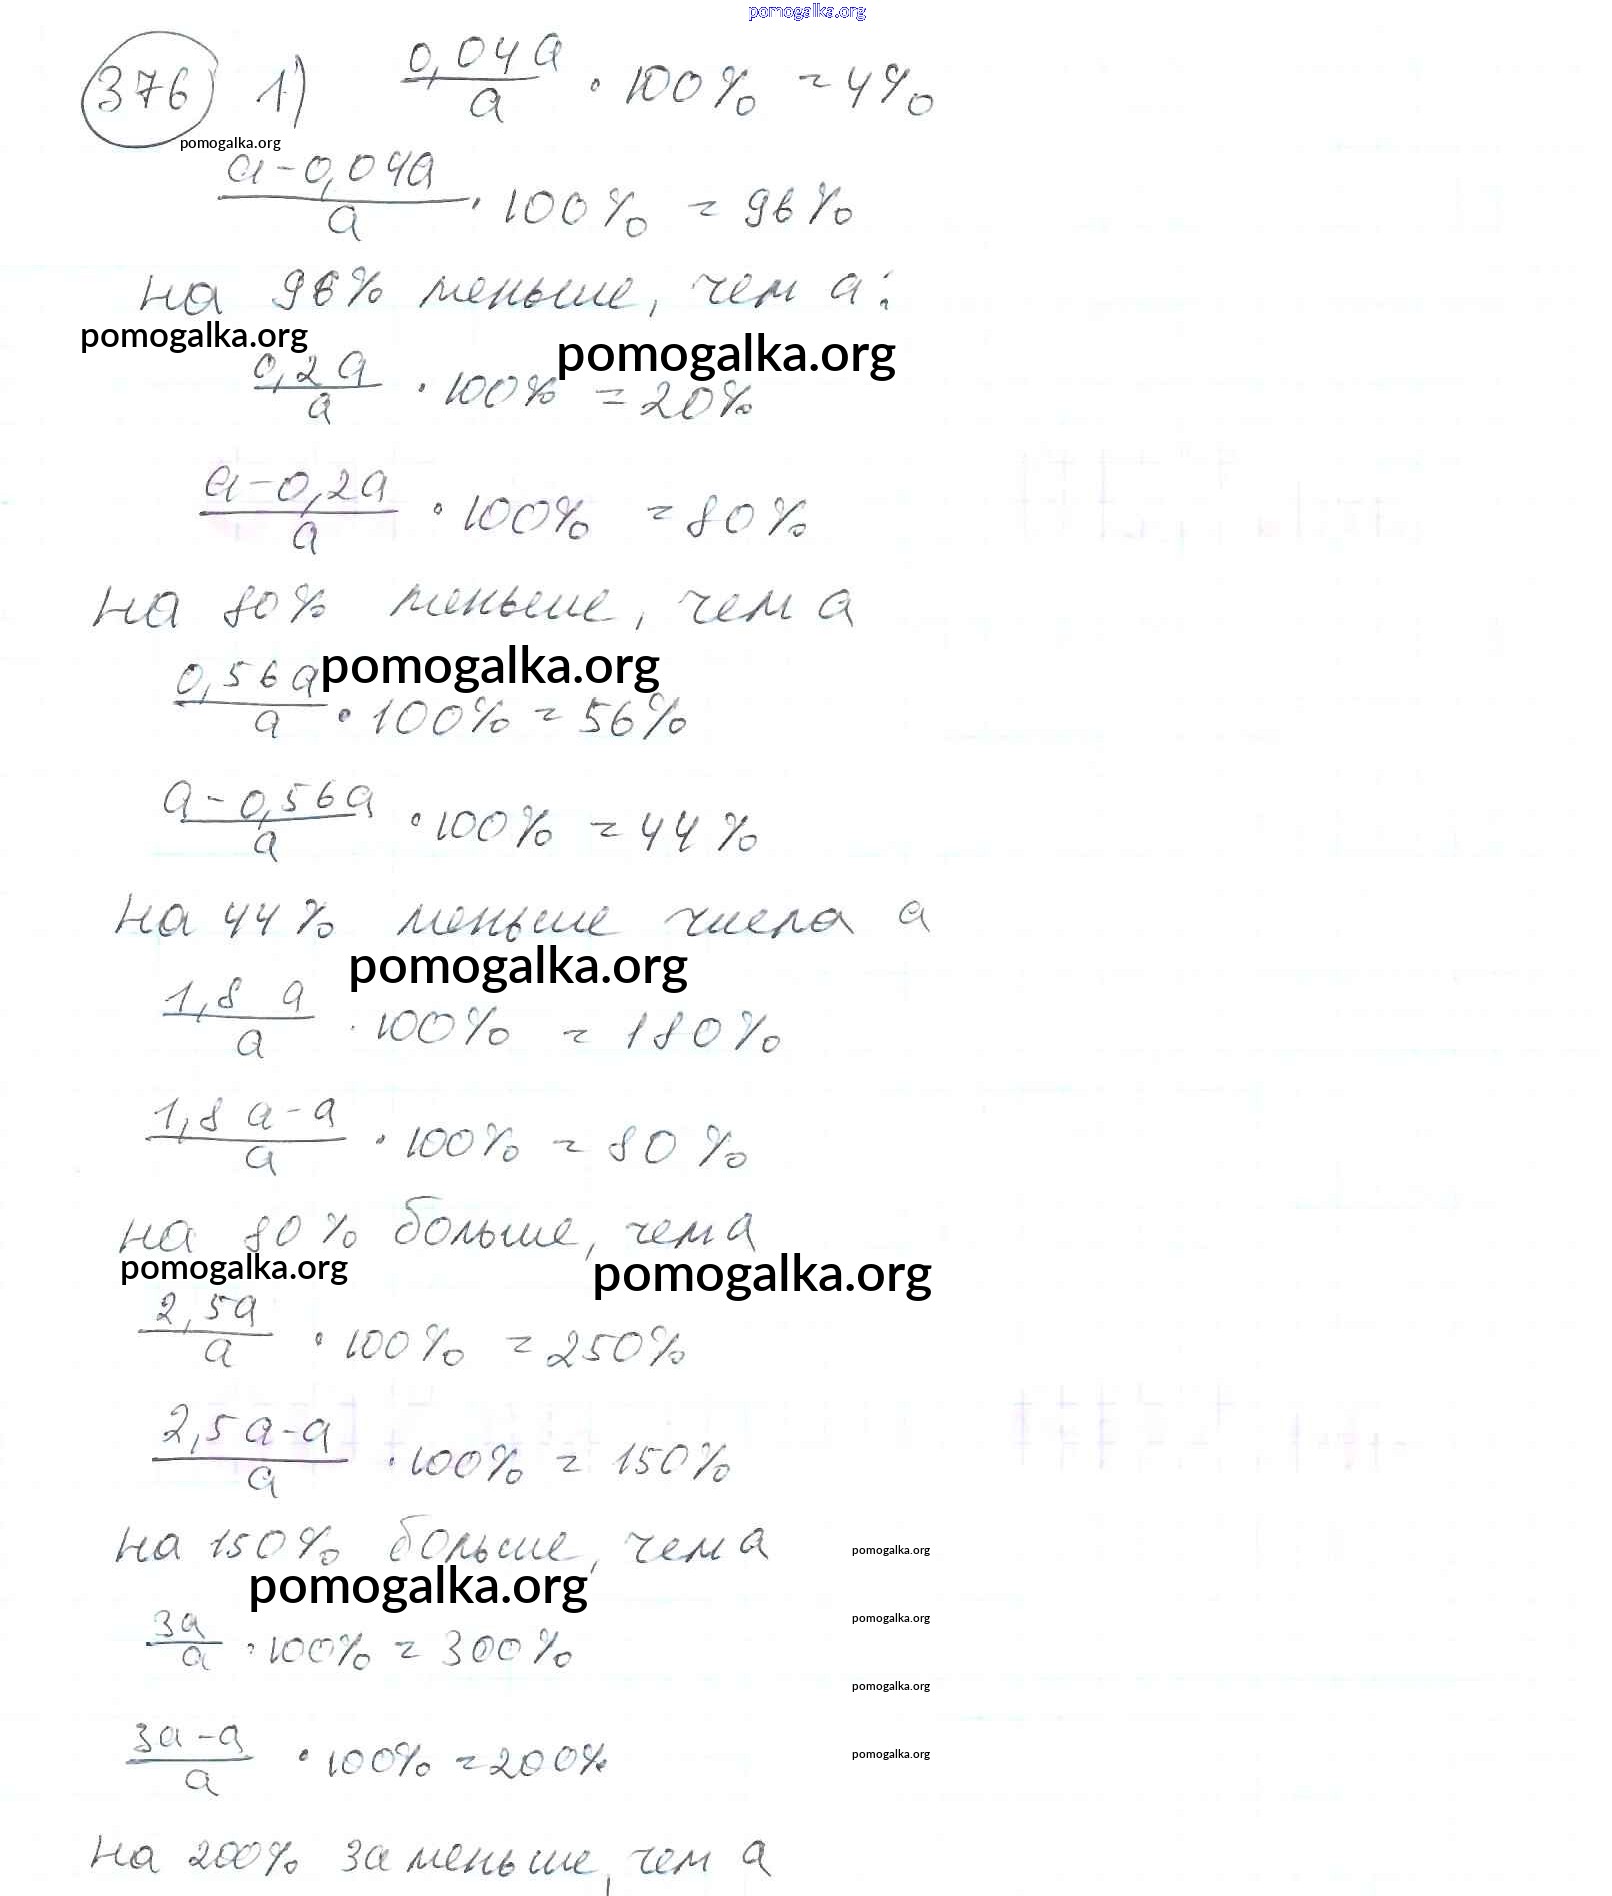 pomogalka.org
376 1) 0,04a/a · 100% = 4%
pomogalka.org
a-0,04a/a · 100% = 96%
на 96% меньше, чем a:
pomogalka.org pomogalka.org
0,2a/a · 100% = 20%
a-0,2a/a · 100% = 80%
на 80% меньше, чем a
pomogalka.org
0,56a/a · 100% = 56%
a-0,56a/a · 100% = 44%
на 44% меньше числа a
pomogalka.org
1,8a/a · 100% = 180%
1,8a-a/a · 100% = 80%
на 80% больше, чем a
pomogalka.org pomogalka.org
2,5a/a · 100% = 250%
2,5a-a/a · 100% = 150%
на 150% больше, чем a
pomogalka.org
pomogalka.org
3a/a · 100% = 300%
pomogalka.org
pomogalka.org
3a-a/a · 100% = 200%
pomogalka.org
на 200% 3a меньше, чем a